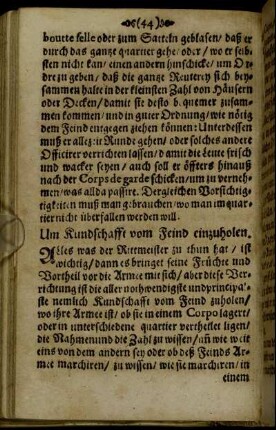 (44)
boutte selle oder zum Satteln geblasen/ daß er
durch das gantze quartier gehe/ oder/ wo er sub-
sten nicht kan/ einen andern hinschicke/ um Or-
dre zu geben/ daß die gantze Reuterey sich bey-
sammen halte in der kleinsten Zahl von Häusern
oder Decken/ damit sie desto b. quemer zusam-
men kommen/ und in guter Ordnung/ wie nörig
dem Feind entgegen ziehen können: Unterdessen
muß er allezeit Runde gehen/ oder solches andere
Officirer verrichten lassen/ damit die Leute frisch
und wacker seyen/ auch soll er öffters hinauß
nach der Corps de garde schicken/ um zu verneh-
men/ was allda passire. Dergleichen Vorsichtig-
tigkeiten muß man gebrauchen/ wo man im quar-
tier nicht überfallen werden will.
Um Kundschafft vom Feind einzuholen.
Alles was der Rittmeister zu thun hat/ ist
wichtig/ dann es bringet seine Früchte und
Vortheil vor die Armee mit sich/ aber diese Ver-
richtung ist die aller nothwendigste und principa'-
ste nemlich Kundschafft vom Feind zuholen/
wo ihre Armee ist/ ob sie in einem Corpo lagert/
oder in unterschiedene quartier vertheilet ligen/
die Nahmen und die Zahl zu wissen/ uñ wie weit
eins von dem andern sey oder ob deß Feinds Ar-
mee marchiren/ zu wissen/ wie sie marchiren/ in
einem